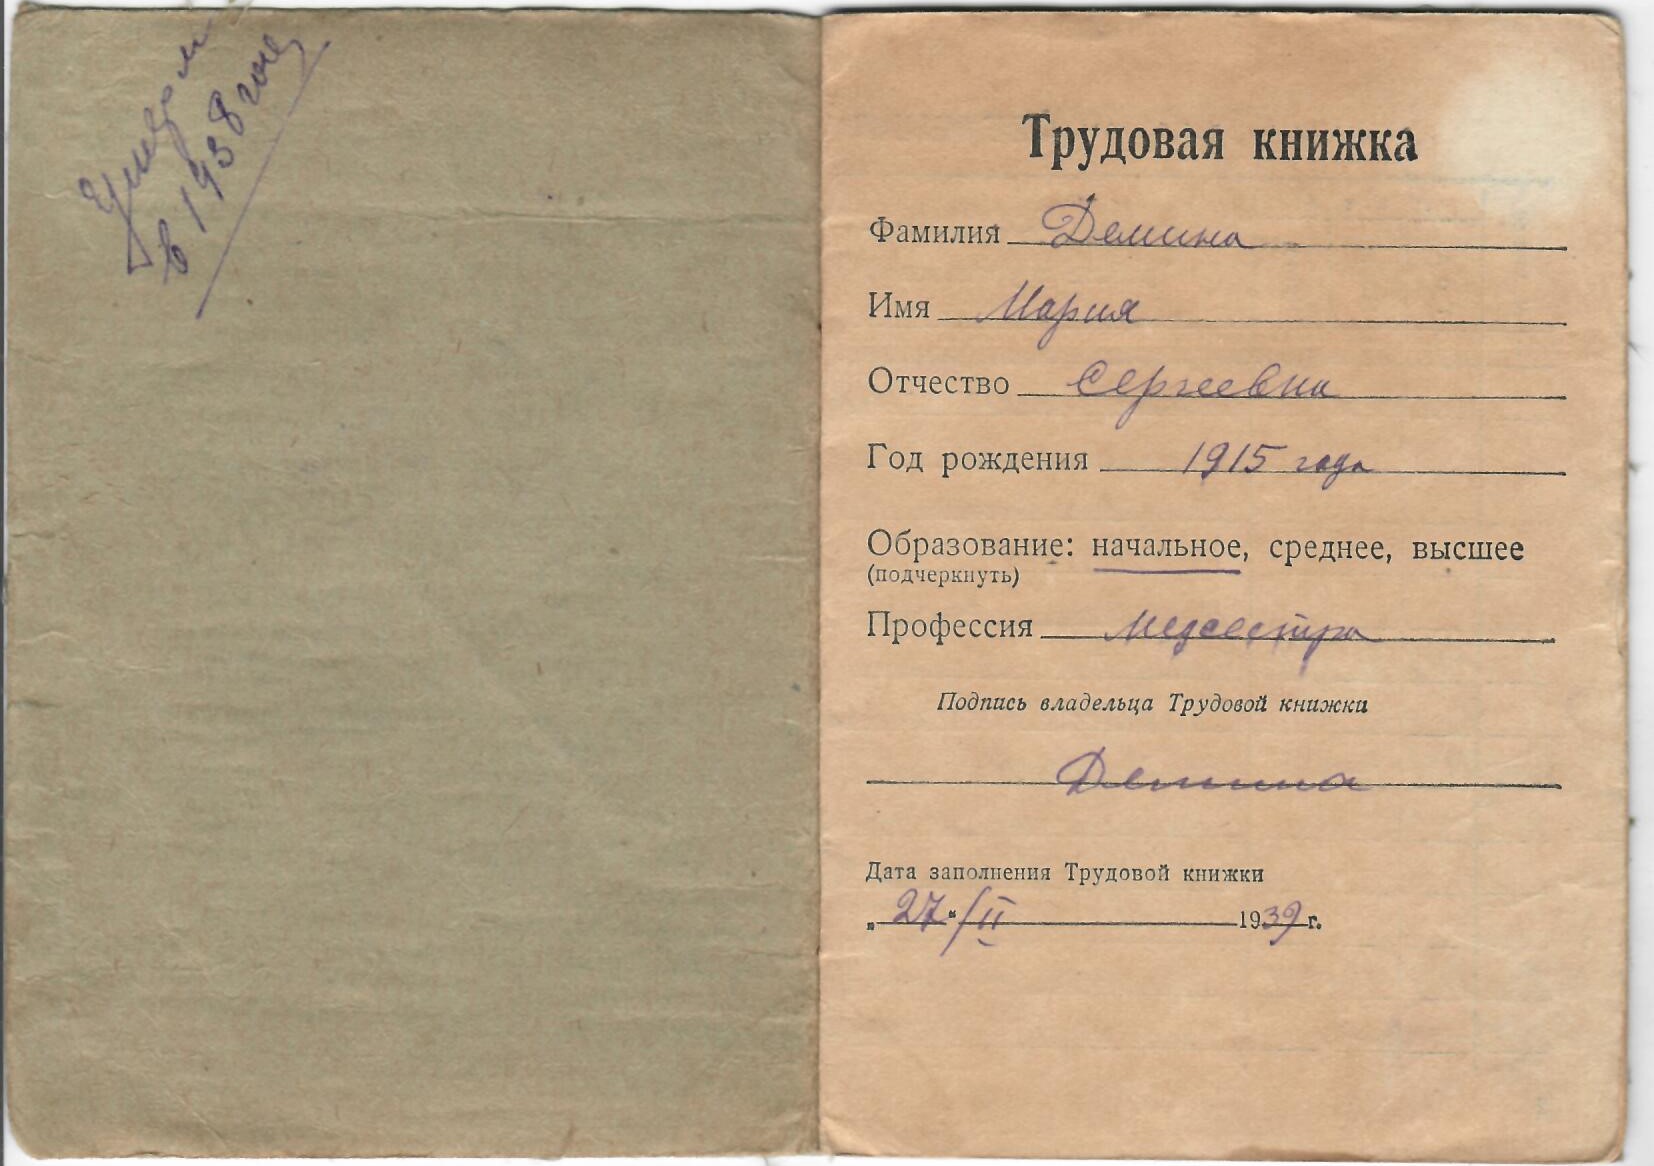 в 1938 году
Трудовая книжка
Фамилия Демина
Имя Мария
Отчество Сергеевна
Год рождения 1915 года
Образование: начальное, среднее, высшее
(подчеркнуть)
Профессия Медсестра
Подпись владельца Трудовой книжки
Демина
Дата заполнения Трудовой книжки
„27“/II 1939 г.